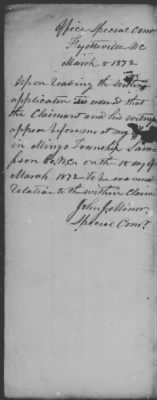 Office Special Comr
Fayettville NC
March 8 1872
Upon reading the within
application it is ordered that
the Claimant and his witness
appear before me at my
in Mingo Township Sam
pson Co. N.C. on the 18 day of
March 1872 to be examined
relation to the within Claim
John J. Minor
Special Comr